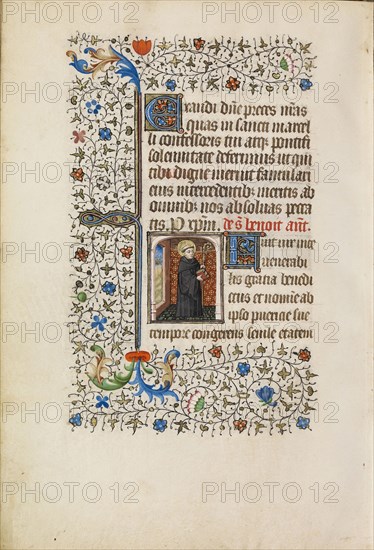 PHOTO12 PHOTO12 PHOTO12
Exaudi dn̄e preces nr̄as
quas in sancti marcel
li confessoris tui atq̄ pontifi
solemnitate deferimus ut qui
tibi digne meruit famulari
eius intercedentibz meritis ab
omnibz nos absoluas pecca
tis. P xp̄m. de s. benoit añt.
Fuit uir uite
venerabi
lis gratia benedi
ctus et nomine ab
ipso puericie sue
tempore cor gerens senile etatem